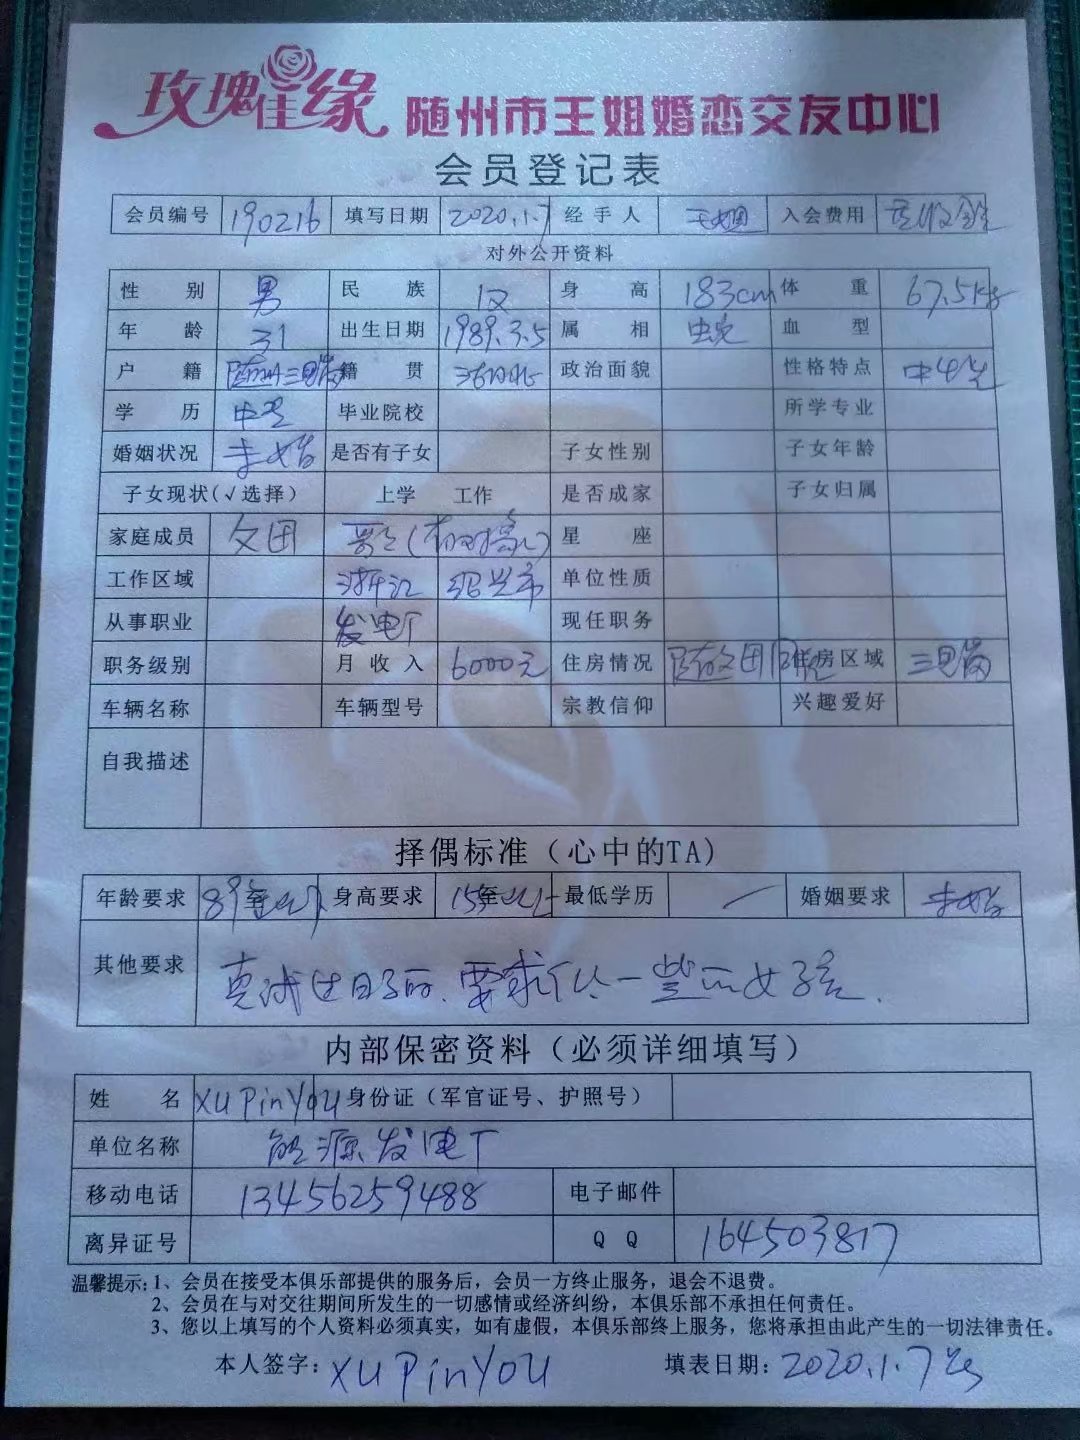 玫瑰佳缘 随州市王姐婚恋交友中心
会员登记表
会员编号 190216 填写日期 2020.1.7 经手人 王姐 入会费用
对外公开资料
性别 男 民族 汉 身高 183cm 体重 67.5kg
年龄 31 出生日期 1989.3.5 属相 蛇 血型
户籍 籍贯 湖北 政治面貌 性格特点
学历 中专 毕业院校 所学专业
婚姻状况 未婚 是否有子女 子女性别 子女年龄
子女现状(√选择) 上学 工作 是否成家 子女归属
家庭成员 星座
工作区域 浙江 绍兴市 单位性质
从事职业 发电厂 现任职务
职务级别 月收入 6000元 住房情况 住房区域 三里岗
车辆名称 车辆型号 宗教信仰 兴趣爱好
自我描述
择偶标准（心中的TA)
年龄要求 89至 身高要求 155至以上 最低学历 婚姻要求 未婚
其他要求 真诚过日子的.要求 一些的女孩.
内部保密资料（必须详细填写）
姓名 XU PinYOU 身份证（军官证号、护照号）
单位名称 能源发电厂
移动电话 13456259488 电子邮件
离异证号 QQ 164503817
温馨提示:1、会员在接受本俱乐部提供的服务后，会员一方终止服务，退会不退费。
2、会员在与对交往期间所发生的一切感情或经济纠纷，本俱乐部不承担任何责任。
3、您以上填写的个人资料必须真实，如有虚假，本俱乐部终上服务，您将承担由此产生的一切法律责任。
本人签字: XU PinYOU 填表日期: 2020.1.7